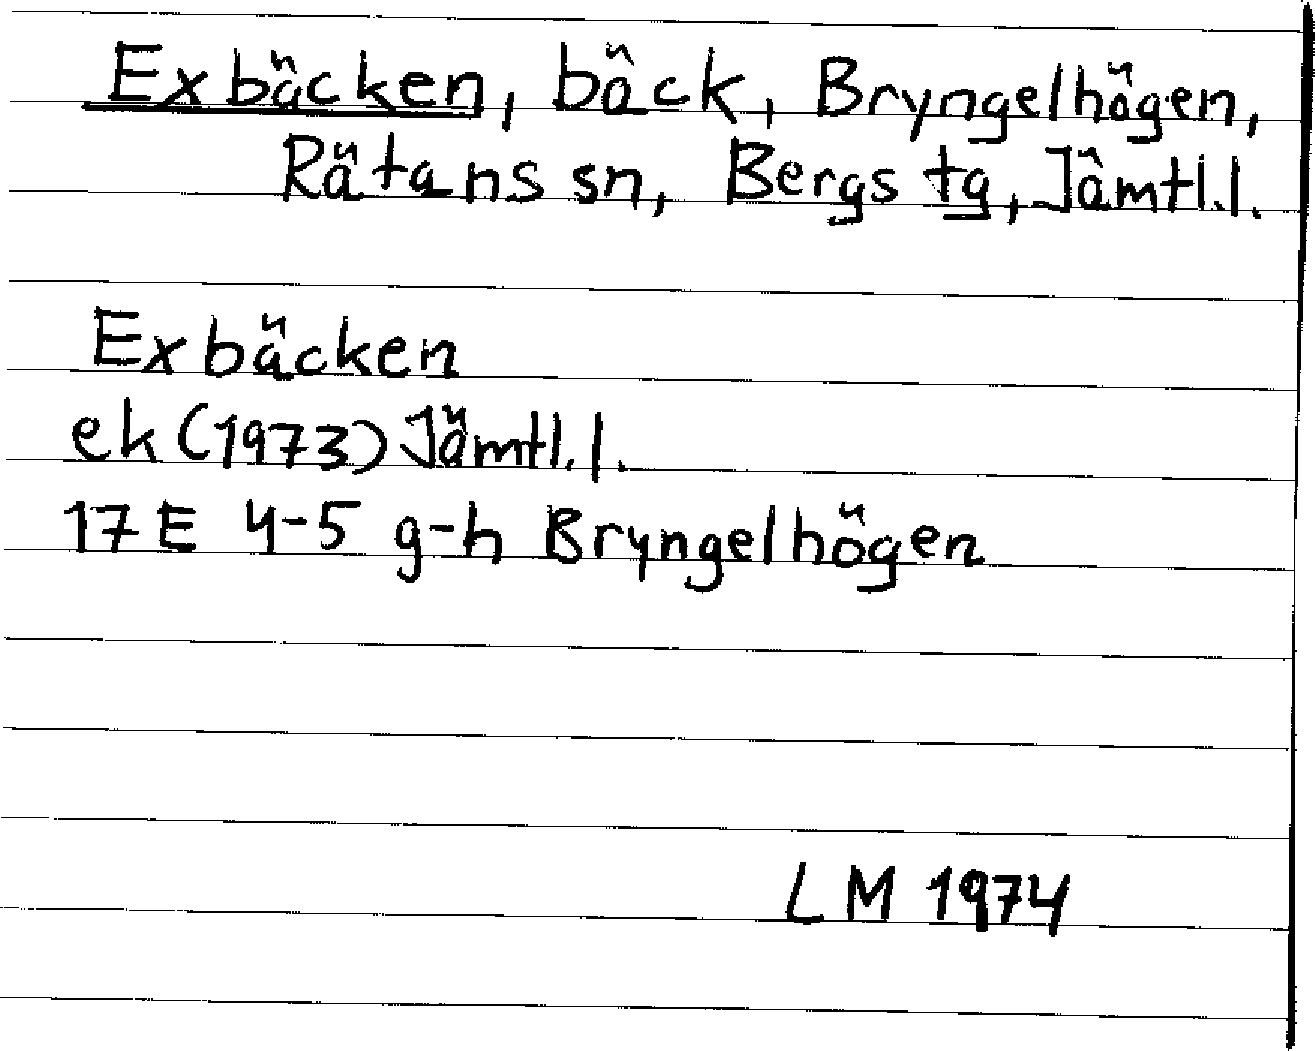 Exbäcken, bäck, Bryngelhögen,
Rätans sn, Bergs tg, Jämtl.l.
Exbäcken
ek (1973) Jämtl.l.
17E 4-5 g-h Bryngelhögen
LM 1974